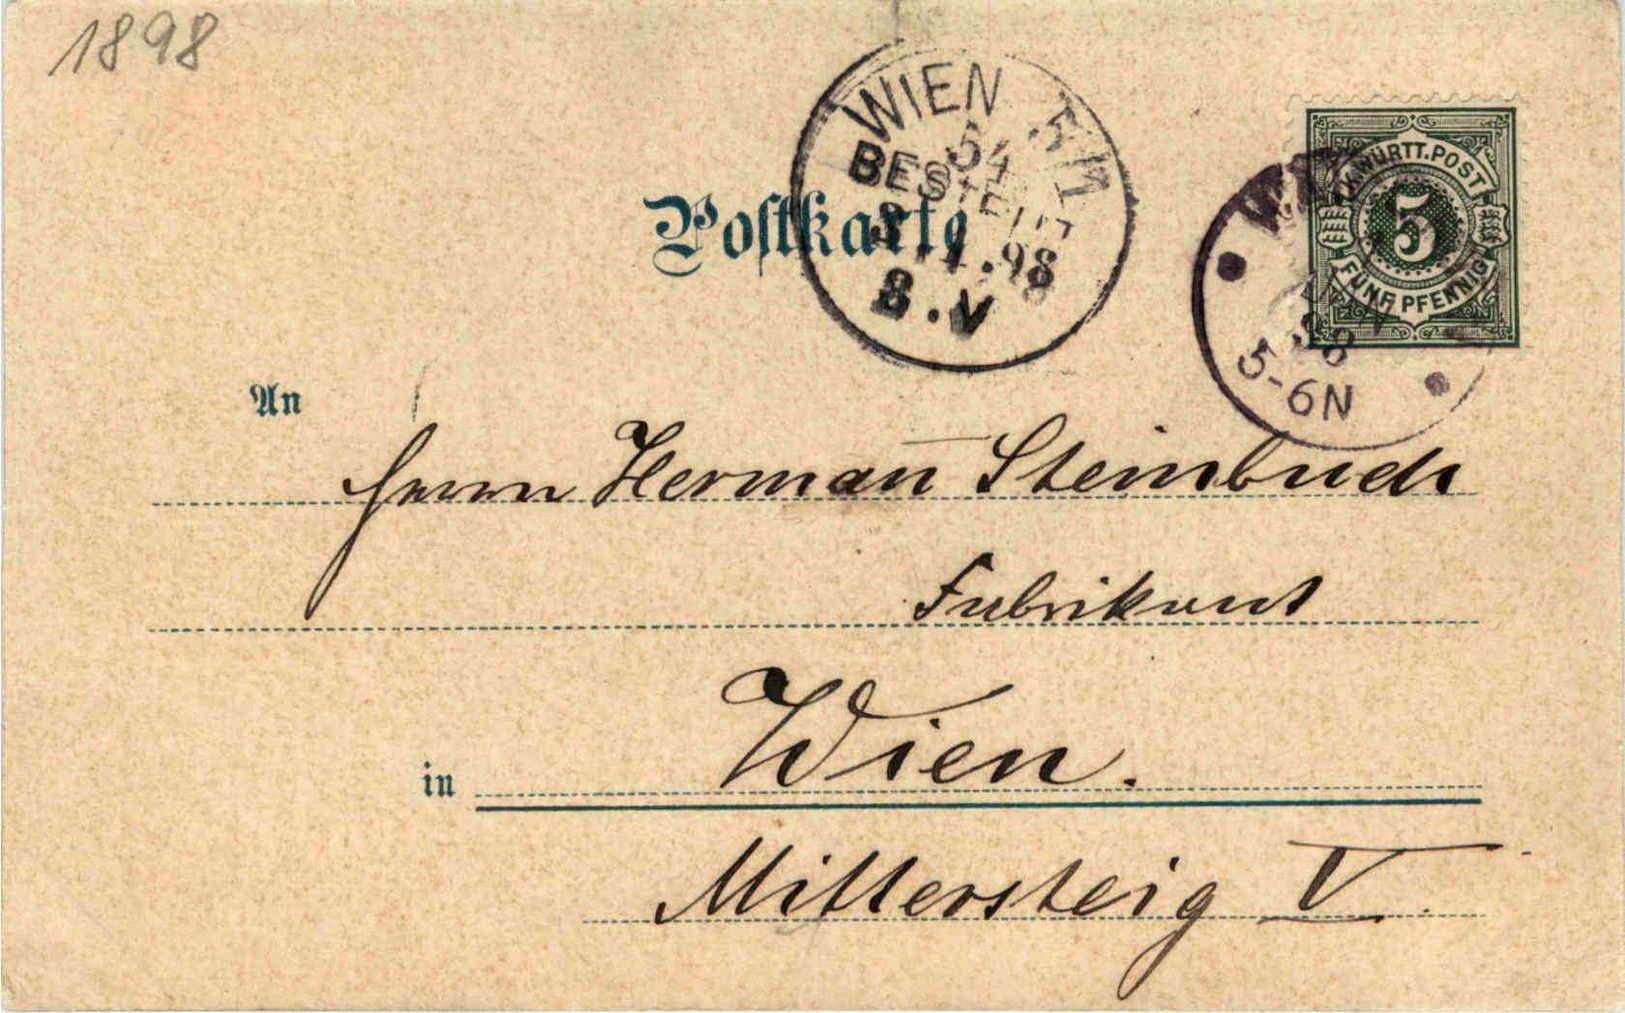 1898
WIEN
54
BESTELLT
.11.98
8.V
Postkarte
K.WÜRTT.POST
5
FÜNF PFENNIG
5-6N
An
Herrn Herman̄ Steinbuch
Fabrikant
in Wien.
Mittersteig V.